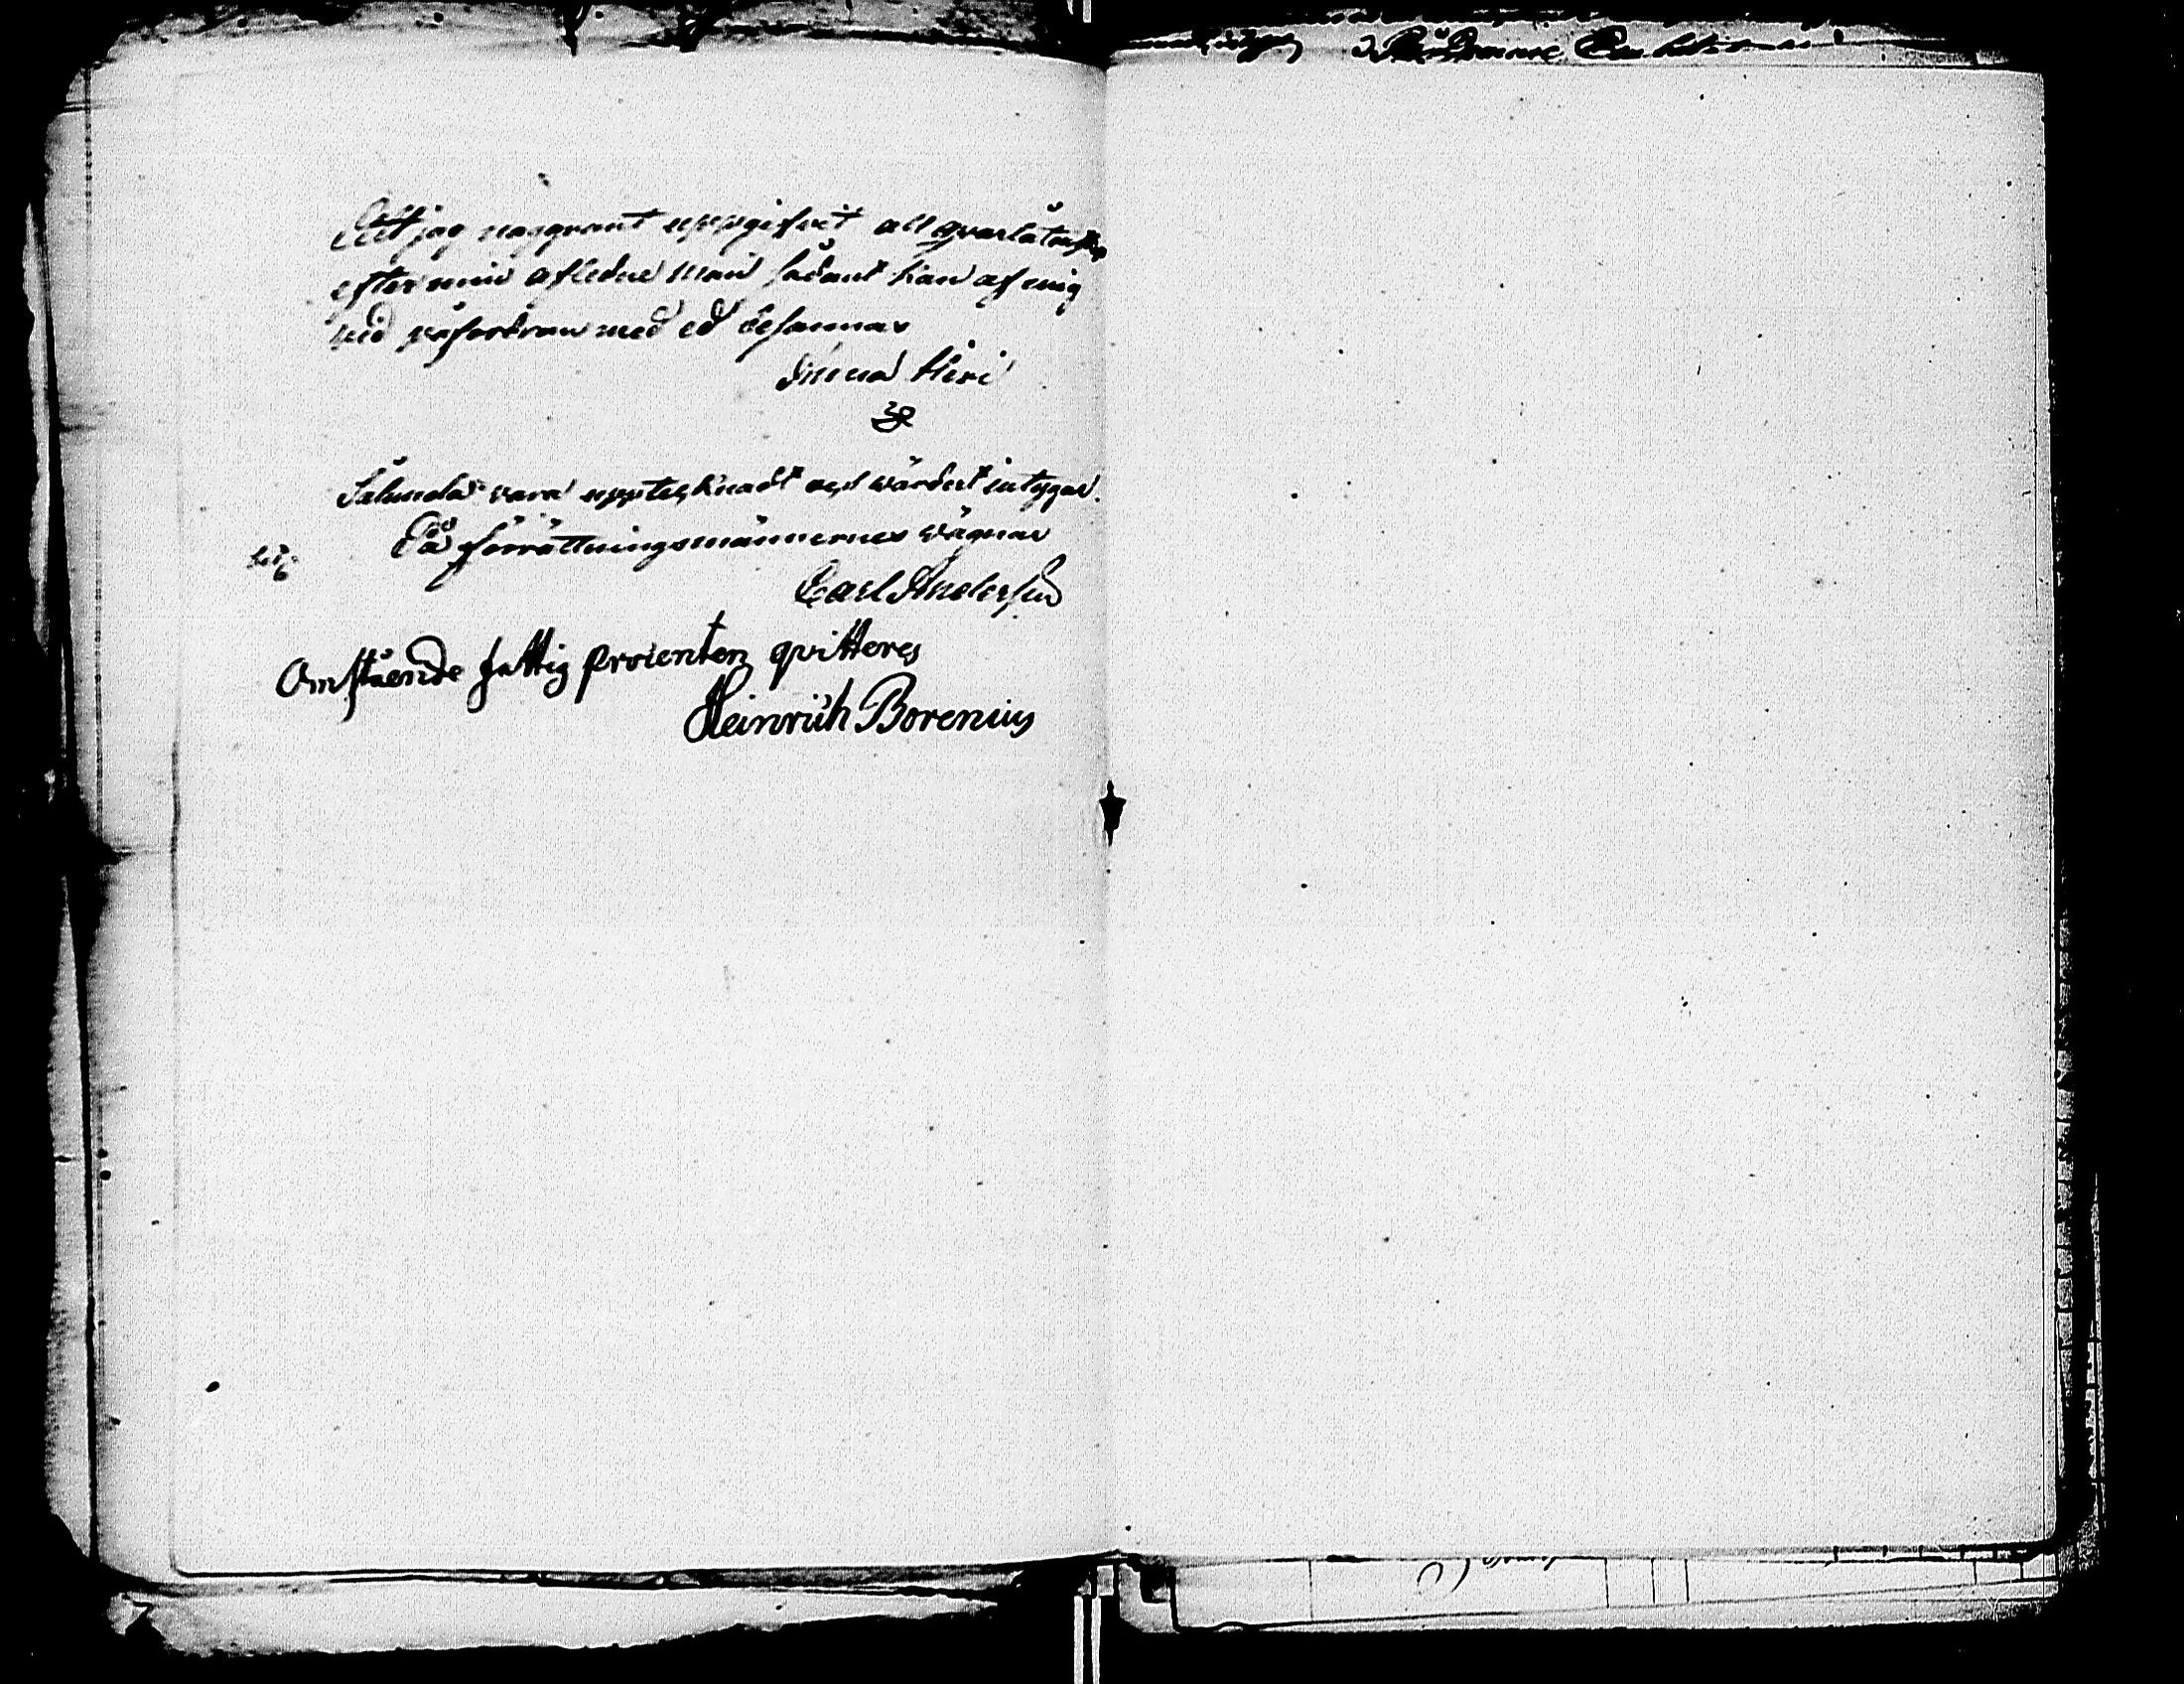 Att jag noggrant uppgifvit all qvarlåtenskap
efter min aflidne man sådant kan af mig
vid påfordran med ed besannas
Anna
Sålunda vara upptecknadt och värdert intygar.
På förrättningsmännernes vägnar
Carl Andersson
Omstående fattig procenten qvitteres
Heinrich Borenius